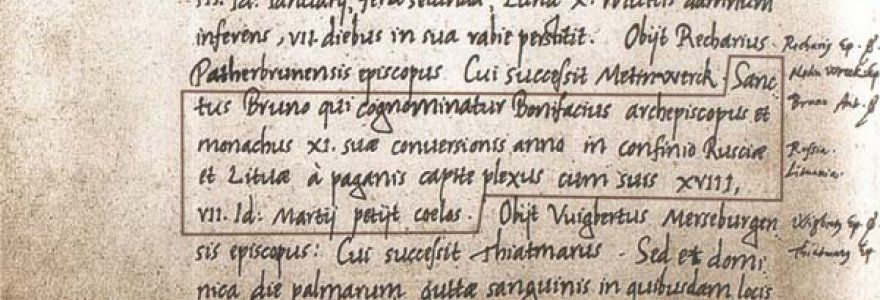 III. Id. Ianuarij, feria secunda, Luna X.
inferens, VII. diebus in sua rabie perstitit. Obijt Recharius
Patherbrunensis episcopus Cui successit Metinwerck. Sanc
tus Bruno qui cognominatur Bonifacius archepiscopus et
monachus XI. suæ conversionis anno in confinio Rusciæ
et Lituæ à paganis capite plexus cum suis XVIII,
VII. Id: Martij petijt coelos. Obijt Vuigbertus Merseburgen
sis episcopus: Cui successit Thiatmarus. Sed et domi
nica die palmarum guttæ sanguinis in quibusdam locis
Recharius Ep.
Bruno
Russia.
Lituania.
Ep.
Thiatmarus Ep